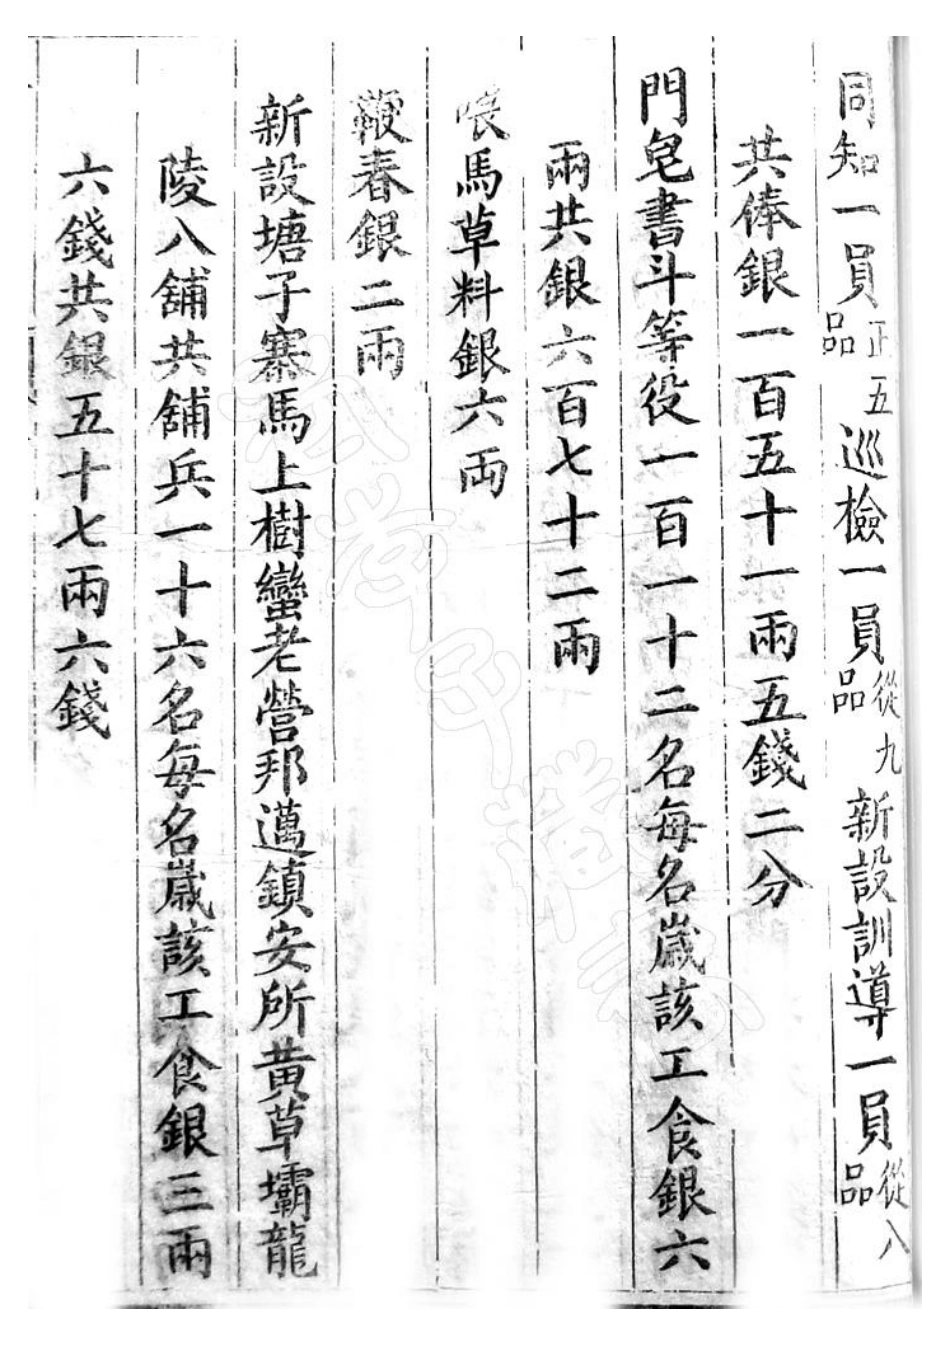 同知一員正五品巡檢一員從九品新設訓導一員從八品
共俸銀一百五十一兩五錢二分
門皂書斗等役一百一十二名每名歲該工食銀六
兩共銀六百七十二兩
喂馬草料銀六両
鞭春銀二兩
新設塘子寨馬上樹蠻老營邦邁鎮安所黄草壩龍
陵八舖共舖兵一十六名每名歲該工食銀三兩
六錢共銀五十七兩六錢